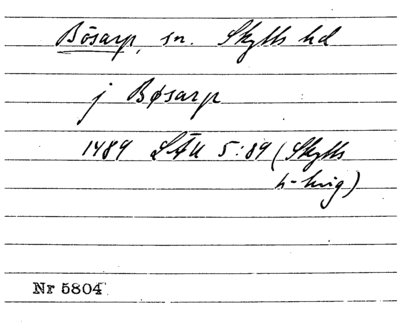 Bösarp, sn. Skytts hd
j Bøsarp
1489 LÅU 5:89 (Skytts
h-
Nr 5804